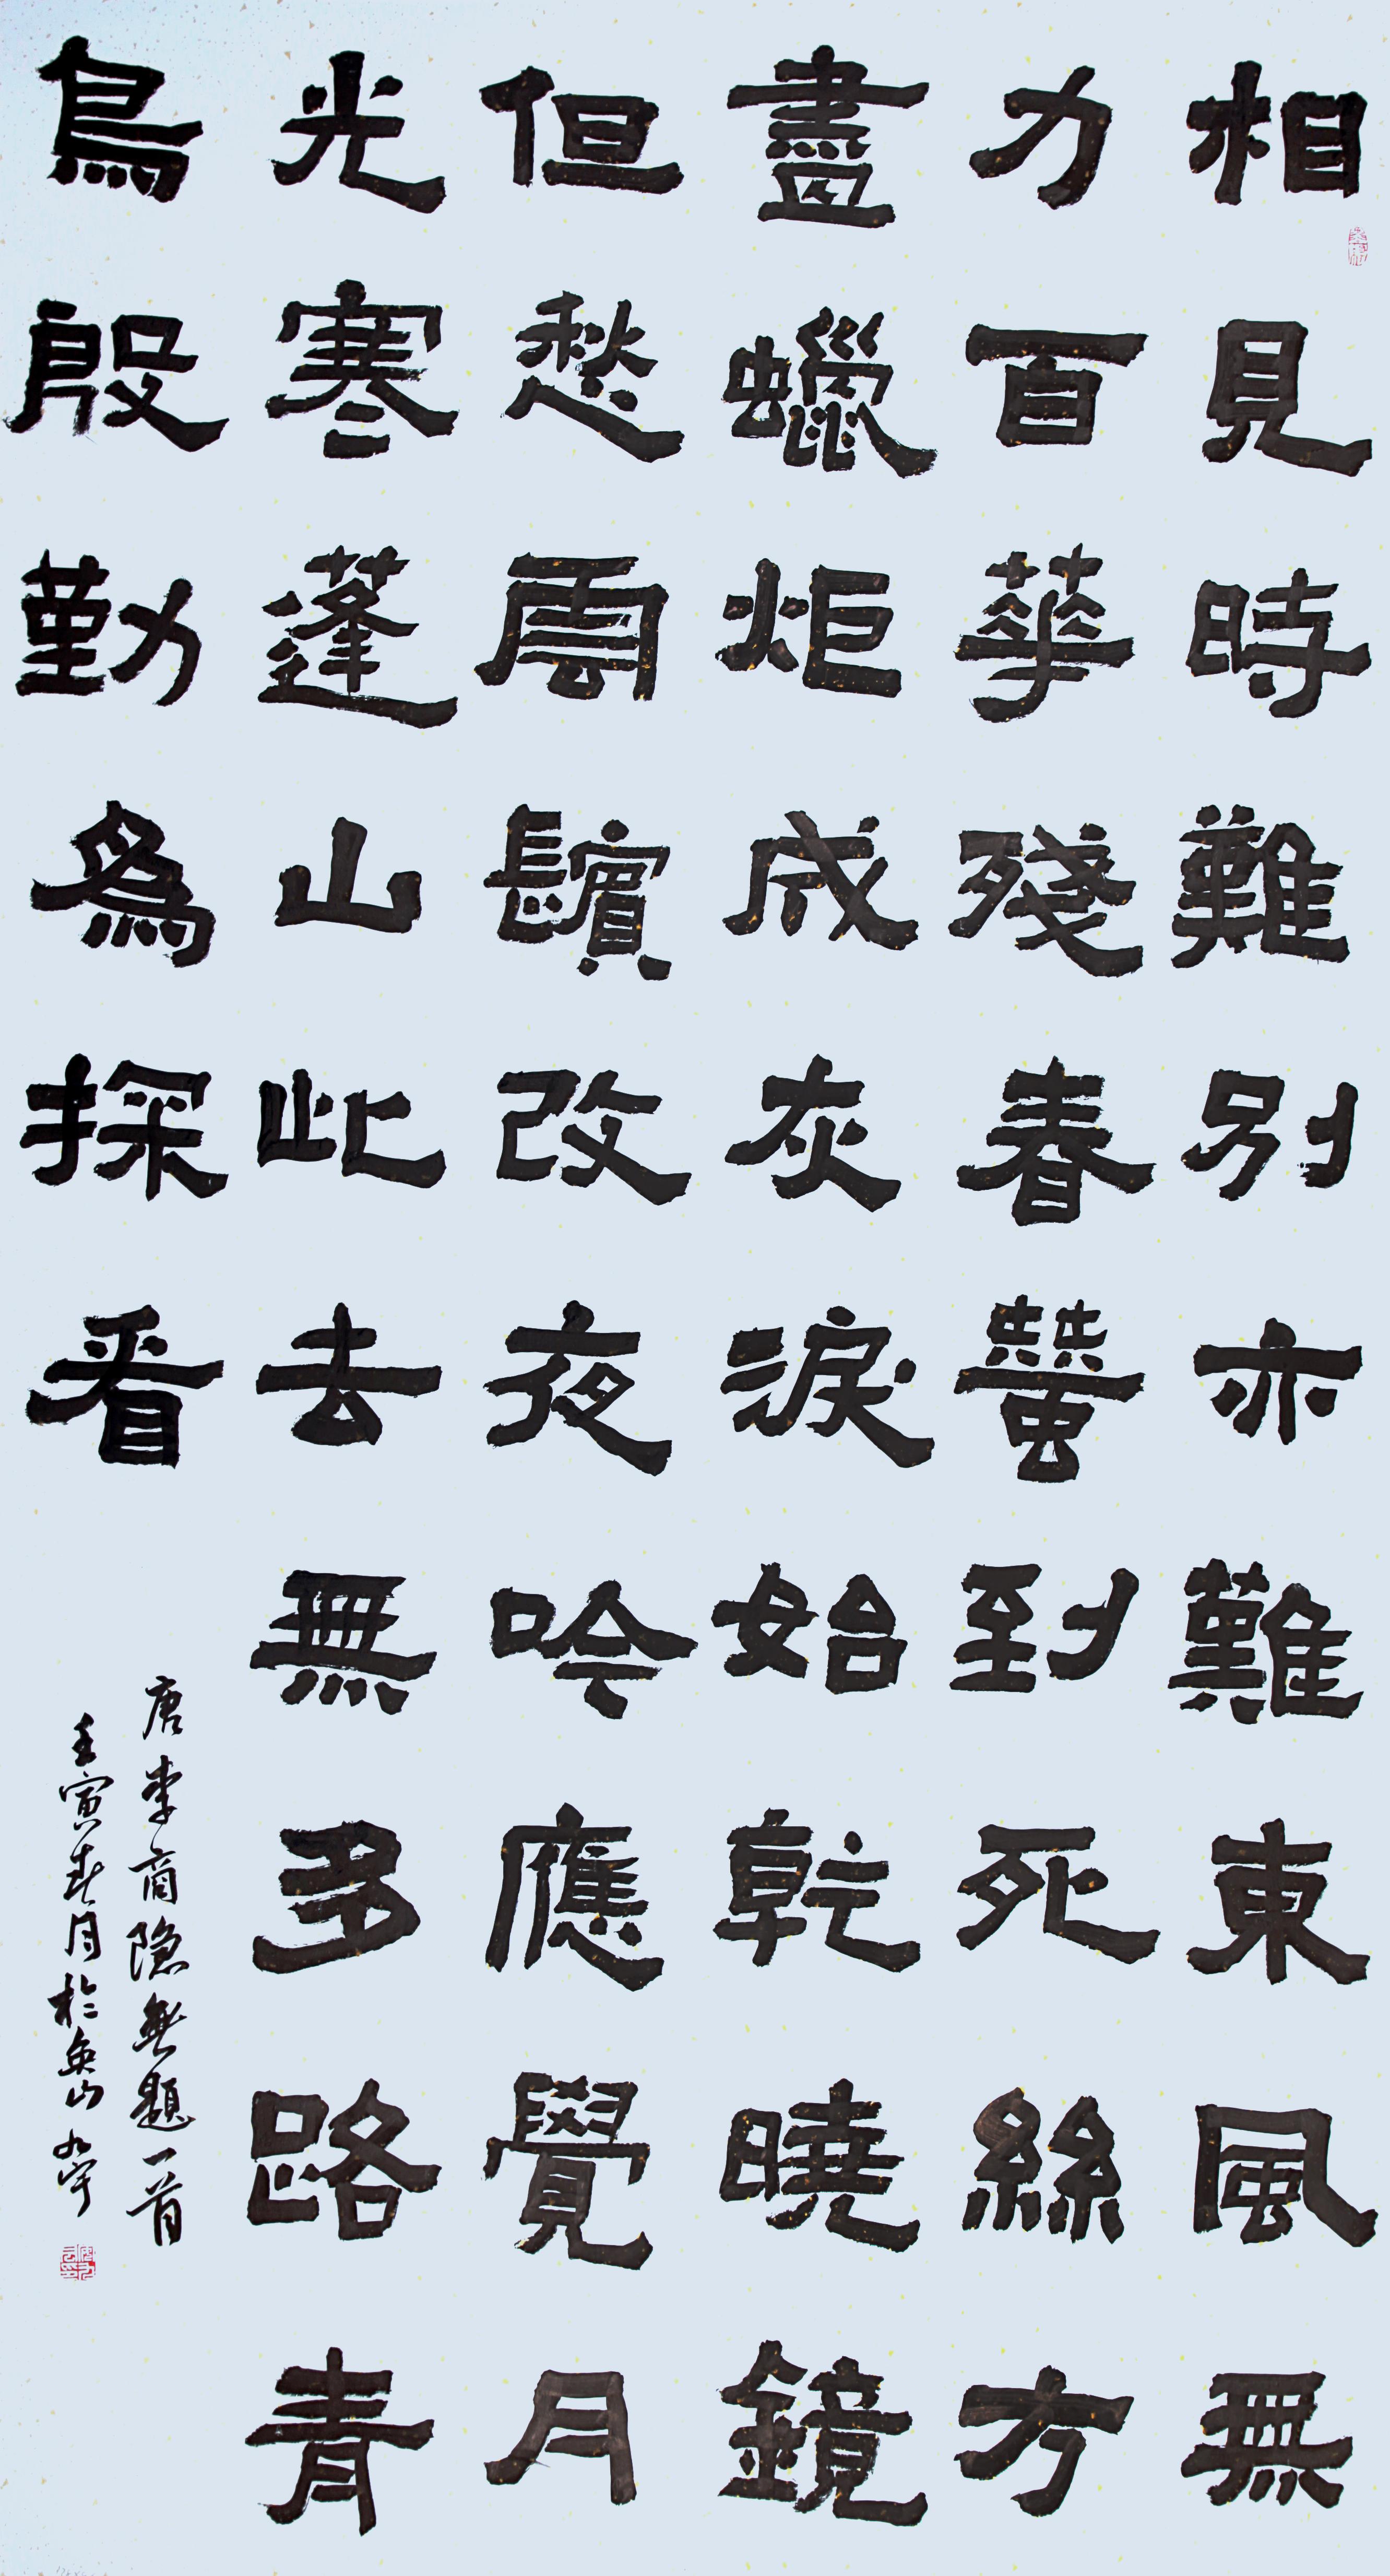 相見時難別亦難東風無
力百華殘春蠶到死絲方
盡蠟炬成灰淚始乾曉鏡
但愁雲鬢改夜吟應覺月
光寒蓬山此去無多路青
鳥殷勤為探看
唐李商隐無題一首
壬寅春月於英山九宇